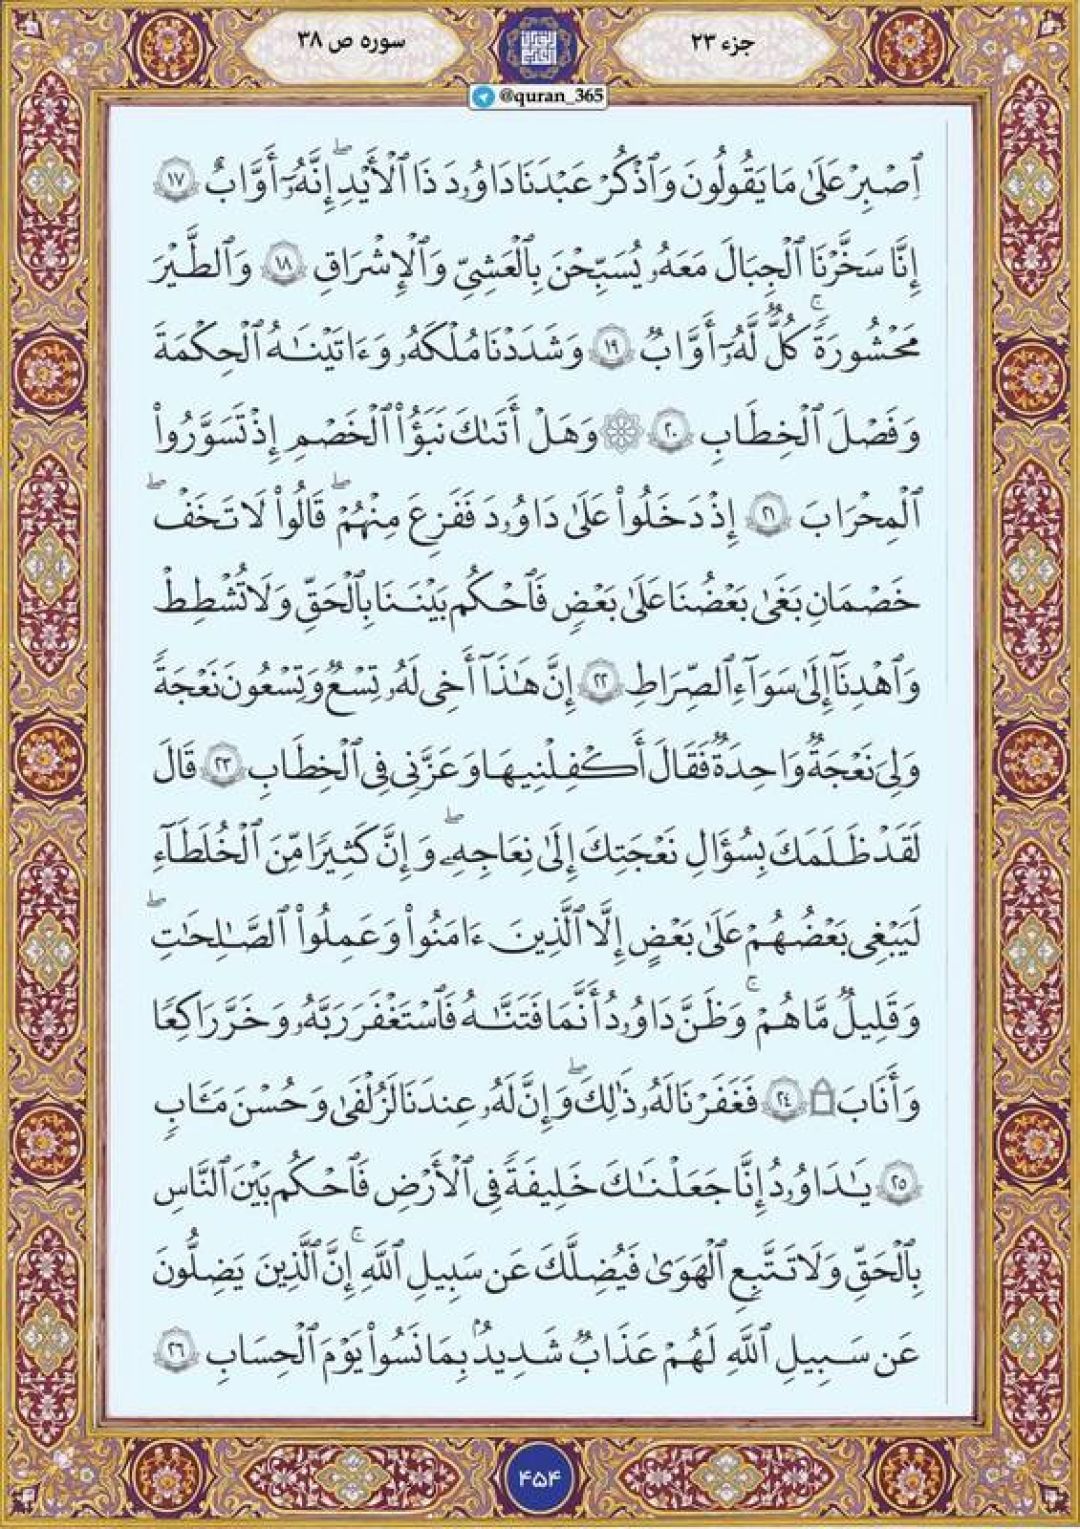 جزء ۲۳
سوره ص ۳۸
@quran_365
ٱصۡبِرۡ عَلَىٰ مَا يَقُولُونَ وَٱذۡكُرۡ عَبۡدَنَا دَاوُۥدَ ذَا ٱلۡأَيۡدِۖ إِنَّهُۥٓ أَوَّابٌ ١٧
إِنَّا سَخَّرۡنَا ٱلۡجِبَالَ مَعَهُۥ يُسَبِّحۡنَ بِٱلۡعَشِيِّ وَٱلۡإِشۡرَاقِ ١٨ وَٱلطَّيۡرَ
مَحۡشُورَةٗۖ كُلّٞ لَّهُۥٓ أَوَّابٞ ١٩ وَشَدَدۡنَا مُلۡكَهُۥ وَءَاتَيۡنَٰهُ ٱلۡحِكۡمَةَ
وَفَصۡلَ ٱلۡخِطَابِ ٢٠ ۞ وَهَلۡ أَتَىٰكَ نَبَؤُاْ ٱلۡخَصۡمِ إِذۡ تَسَوَّرُواْ
ٱلۡمِحۡرَابَ ٢١ إِذۡ دَخَلُواْ عَلَىٰ دَاوُۥدَ فَفَزِعَ مِنۡهُمۡۖ قَالُواْ لَا تَخَفۡۖ
خَصۡمَانِ بَغَىٰ بَعۡضُنَا عَلَىٰ بَعۡضٖ فَٱحۡكُم بَيۡنَنَا بِٱلۡحَقِّ وَلَا تُشۡطِطۡ
وَٱهۡدِنَآ إِلَىٰ سَوَآءِ ٱلصِّرَٰطِ ٢٢ إِنَّ هَٰذَآ أَخِي لَهُۥ تِسۡعٞ وَتِسۡعُونَ نَعۡجَةٗ
وَلِيَ نَعۡجَةٞ وَٰحِدَةٞ فَقَالَ أَكۡفِلۡنِيهَا وَعَزَّنِي فِي ٱلۡخِطَابِ ٢٣ قَالَ
لَقَدۡ ظَلَمَكَ بِسُؤَالِ نَعۡجَتِكَ إِلَىٰ نِعَاجِهِۦۖ وَإِنَّ كَثِيرٗا مِّنَ ٱلۡخُلَطَآءِ
لَيَبۡغِي بَعۡضُهُمۡ عَلَىٰ بَعۡضٍ إِلَّا ٱلَّذِينَ ءَامَنُواْ وَعَمِلُواْ ٱلصَّٰلِحَٰتِۖ
وَقَلِيلٞ مَّا هُمۡۚ وَظَنَّ دَاوُۥدُ أَنَّمَا فَتَنَّٰهُ فَٱسۡتَغۡفَرَ رَبَّهُۥ وَخَرَّ رَاكِعٗا
وَأَنَابَ ٢٤ فَغَفَرۡنَا لَهُۥ ذَٰلِكَۖ وَإِنَّ لَهُۥ عِندَنَا لَزُلۡفَىٰ وَحُسۡنَ مَـَٔابٖ
٢٥ يَٰدَاوُۥدُ إِنَّا جَعَلۡنَٰكَ خَلِيفَةٗ فِي ٱلۡأَرۡضِ فَٱحۡكُم بَيۡنَ ٱلنَّاسِ
بِٱلۡحَقِّ وَلَا تَتَّبِعِ ٱلۡهَوَىٰ فَيُضِلَّكَ عَن سَبِيلِ ٱللَّهِۚ إِنَّ ٱلَّذِينَ يَضِلُّونَ
عَن سَبِيلِ ٱللَّهِ لَهُمۡ عَذَابٞ شَدِيدُۢ بِمَا نَسُواْ يَوۡمَ ٱلۡحِسَابِ ٢٦
۴۵۴